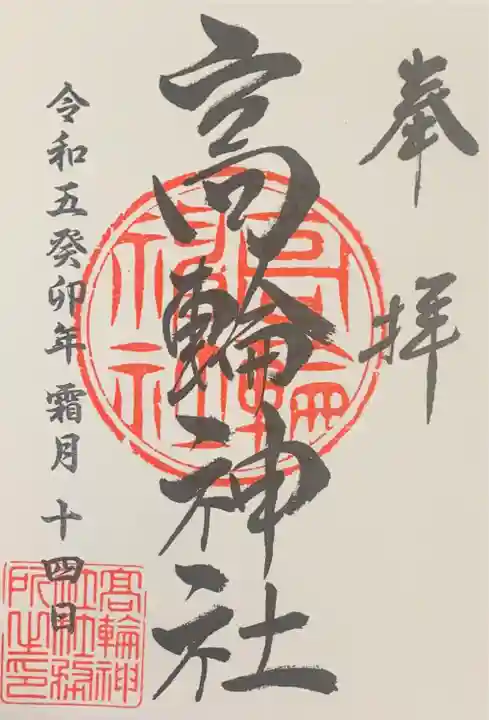 奉拝
高輪神社
令和五癸卯年 霜月 十四日
高輪神
社社務
所之印